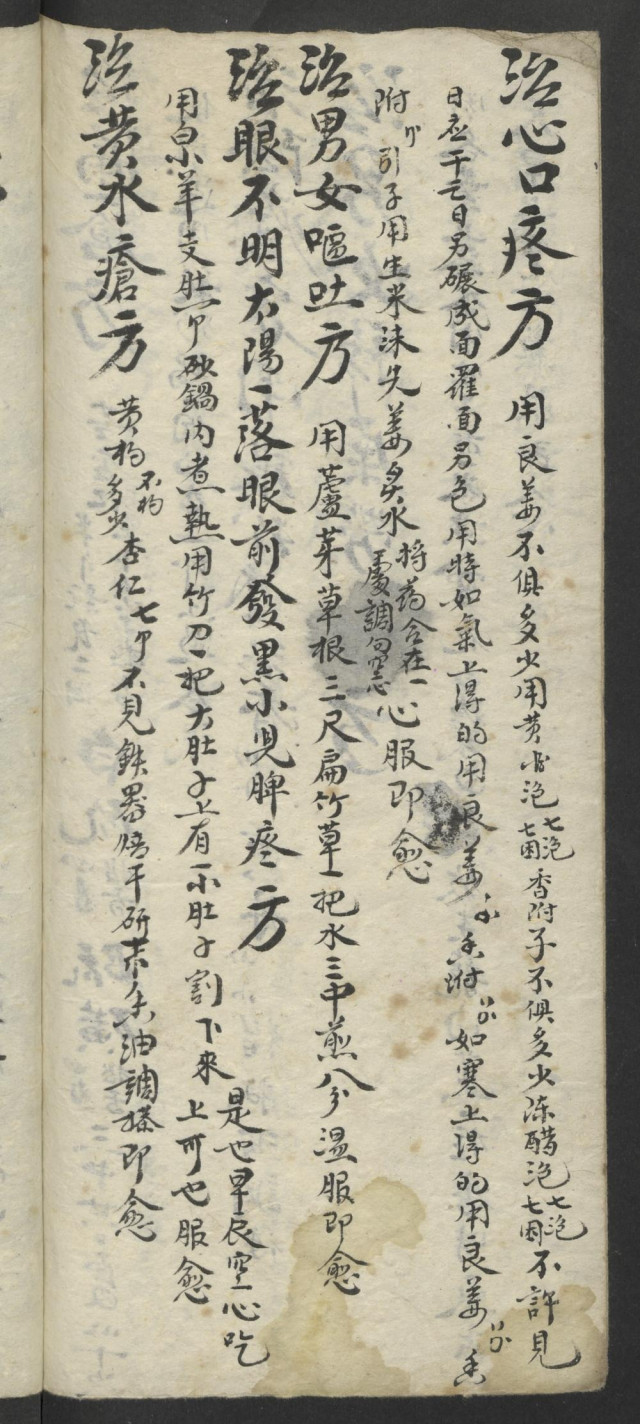 治心口疼方 用良姜不俱多少用黄酒泡七泡七困香附子不俱多少陈醋泡七泡七困不許見
日在干亡日另碾成面羅面另包用時如氣上得的用良姜 香附 如寒上得的用良姜 香
附 引子用生米沫先姜炙水將葯合在一處調匀空心服即愈
治男女嘔吐方 用蘆芽草根三尺扁竹草一把水三中煎八分温服即愈
治眼不明太陽一落眼前發黑小児脾疼方
用白小羊支肚一个砂鍋内煮執用竹刀一把大肚子上有一小肚子割下來是也早辰空心吃上可也服愈
治黄水瘡方 黄柏不构多少杏仁七个不見鉄器焙干研末香油調搽即愈